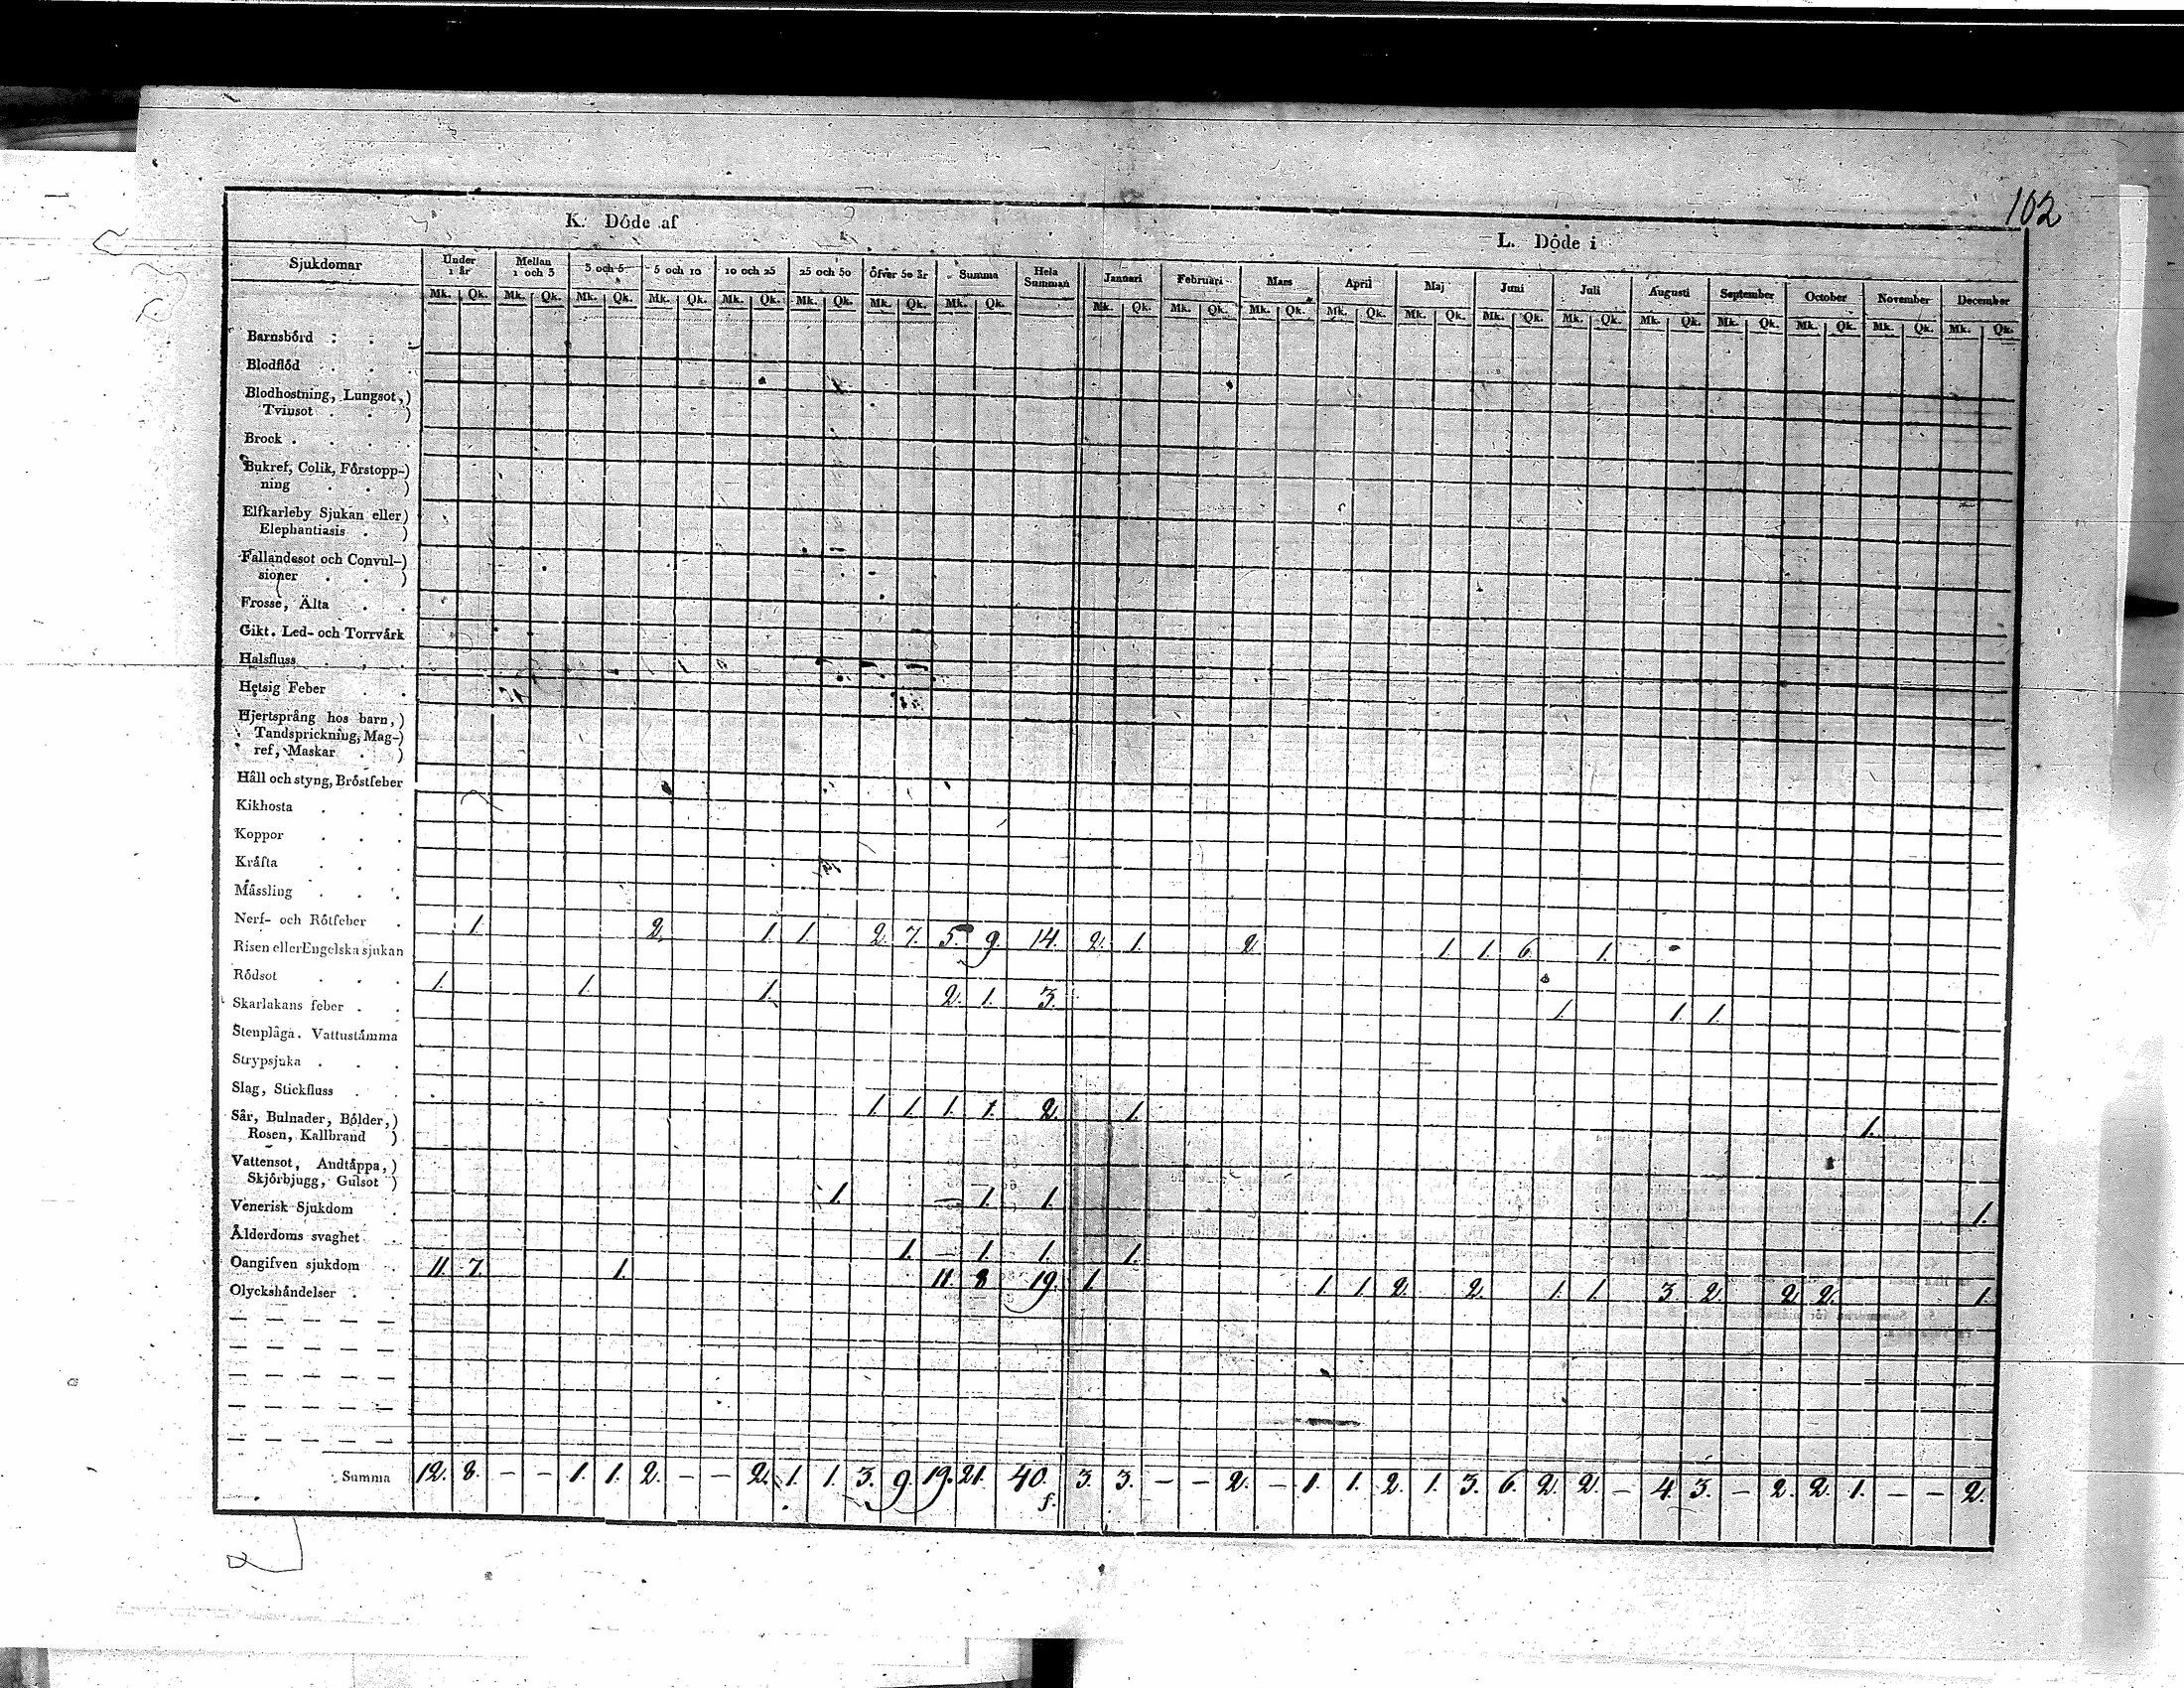 102
K. Döde af
L. Döde i
Sjukdomar Under 1 år Mellan 1 och 3 3 och 5 5 och 10 10 och 25 25 och 50 Öfver 50 år Summa Hela Summan Januari Februari Mars April Maj Juni Juli Augusti September October November December
Mk. Qk. Mk. Qk. Mk. Qk. Mk. Qk. Mk. Qk. Mk. Qk. Mk. Qk. Mk. Qk. Mk. Qk. Mk. Qk. Mk. Qk. Mk. Qk. Mk. Qk. Mk. Qk. Mk. Qk. Mk. Qk. Mk. Qk. Mk. Qk. Mk. Qk. Mk. Qk.
Barnsbörd
Blodflöd
Blodhostning, Lungsot,)
Tvinsot )
Brock
Bukref, Colik, Förstopp-)
ning )
Elfkarleby Sjukan eller)
Elephantiasis )
Fallandesot och Convul-)
sioner )
Frosse, Älta
Gikt. Led- och Torrvärk
Halsfluss
Hetsig Feber
Hjertsprång hos barn,)
Tandsprickning, Mag-)
ref, Maskar )
Håll och styng, Bröstfeber
Kikhosta
Koppor
Kräfta
Mässling
Nerf- och Rötfeber 1. 2. 1. 1. 2. 7. 5. 9. 14. 2. 1. 2. 1. 1. 6. 1.
Risen eller Engelska sjukan
Rödsot 1. 1. 1. 2. 1. 3. 1. 1. 1.
Skarlakans feber
Stenplåga. Vattustämma
Strypsjuka
Slag, Stickfluss 1. 1. 1. 1. 2. 1. 1.
Sår, Bulnader, Bölder,)
Rosen, Kallbrand )
Vattensot, Andtäppa,)
Skjörbjugg, Gulsot ) 1. — 1. 1. 1.
Venerisk Sjukdom
Ålderdoms svaghet 1. — 1. 1. 1.
Oangifven sjukdom 11. 7. 1. 11. 8. 19. 1. 1. 1. 2. 2. 1. 1. 3. 2. 2. 2. 1.
Olyckshändelser
Summa 12. 8. — — 1. 1. 2. — — 2. 1. 1. 3. 9. 19. 21. 40. 3. 3. — — 2. — 1. 1. 2. 1. 3. 6. 2. 2. — 4. 3. — 2. 2. 1. — — 2.
f.